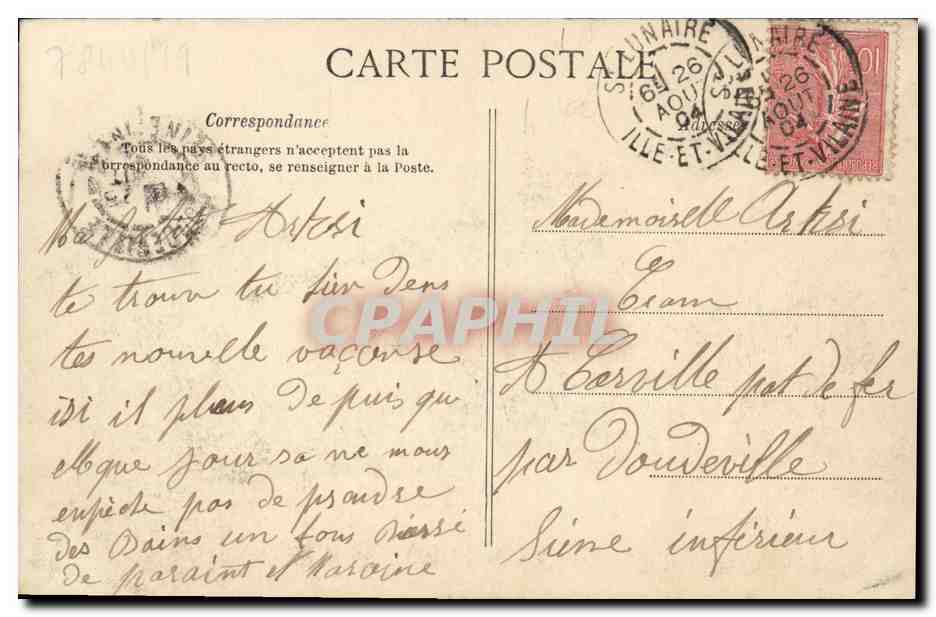 7840/19
CARTE POSTALE
Correspondance
Tous les pays étrangers n'acceptent pas la
correspondance au recto, se renseigner à la Poste.
Adresse
LUNAIRE
26
AOUT
04
ILLE-ET-VILAINE
LUNAIRE
26
AOUT
04
ILLE-ET-VILAINE
10
Ma Arksi
te trouv tu bien dens
tes nouvelle vaçcense
isi il pleus depuis qui
elque jour sa ne nous
enpèche pas de prandre
des Bains un tous
de paraint et Maraine
Mademoiselle Arksi
Team
A Carville pot de fer
par Doudeville
Siene inférieur
CPAPHIL